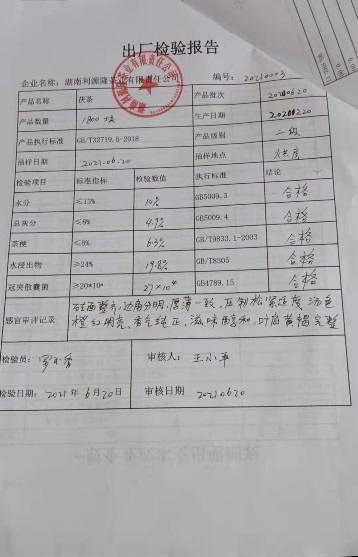 出厂检验报告
企业名称：湖南利源隆茶业有限责任公司 编号：20210003
产品名称 茯茶 产品批次 20210620
产品数量 1800块 生产日期 20200220
产品执行标准 GB/T32719.5-2018 产品级别 二级
抽样日期 2021.06.20 抽样地点 烘房
检验项目 标准指标 检验数值 执行标准 结论
水分 ≤15% 10% GB5009.3 合格
总灰分 ≤8% 4.9% GB5009.4 合格
茶梗 ≤8% 6.3% GB/T9833.1-2003 合格
水浸出物 ≥24% 19.8% GB/T8305 合格
冠突散囊菌 ≥20*10⁴ 27×10⁴ GB4789.15 合格
感官审评记录
砖面整齐，边角分明，厚薄一致，压制松紧适度，汤色
橙红明亮，香气纯正，滋味醇和，叶底黄褐完整
检验员： 审核人：王小平
检验日期：2021年6月20日 审核日期 20210620